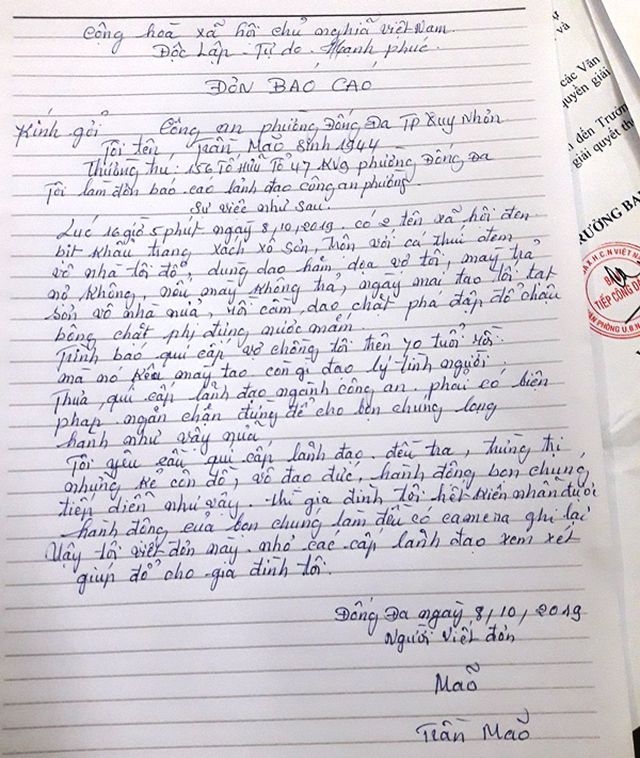 Cộng hoà xã hôi chủ nghiã việt Nam.
Độc Lập - Tự do - Hạnh phúc.
ĐỎN BAÓ CAO
Kính gởỉ Công an phuờng Đống Đa TP Quy Nhỏn
Tôi tên, Trần Maõ Sinh 1944
Thường trú: 156 Tố Hữu Tổ 47 KV9 phường Đống Đa
Tôi làm đỏn baó cao lảnh đạo công an phường.
Sự việc như sau.
Lúc 16 giờ 5 phút ngaỳ 8, 10, 2019 có 2 tên xã hôi đen
bịt khẩu trang xách xô sỏn, trộn vởi cá thúi đem
vô nhà tôi đổ, dung dao hăm dọa vơ tôi, maỳ trả
nở không, nêú maỳ không trả, ngaỳ mai tao lôi tạt
sỏn vô nhà nữa, rồi cầm dao chặt phá đập đổ châu
bông chặt phị đụng nước mắm.
Trình baó quí câṕ vơ chồng tôi trên 70 tuổi rồi
mà nó kêu maỳ tao. còn gì đao lý tình người
Thưa, quí câṕ lảnh đạo ngành công an. phaỉ có biện
pháp. ngăn chặn đừng để cho bọn chúng lộng
hành như vâỵ nữa
Tôi yêu cầu quí câṕ lảnh đao. đều tra, trừng trị
những kẻ côn đồ, vô đạo đức, hành động bọn chúng
tiếp diển như vâỵ. thì gia đình tôi hết kiên nhẩn đươi
hành động của bọn chúng làm đều có camera ghi laị
Vậy tôi viết đỏn naỳ. nhờ cać câṕ lảnh đạo xem xét
giúp đở cho gia đình tôi.
Đống Đa ngaỳ 8, 10, 2019
Người viết đỏn
Maõ
Trần Maõ
và
các Văn
quyền giải
đến Trưởn
giải quyết th
RƯỞNG BA
X.H.C.N VIỆT N
BAN
TIẾP CÔNG DÂ
PHÒNG U.B.